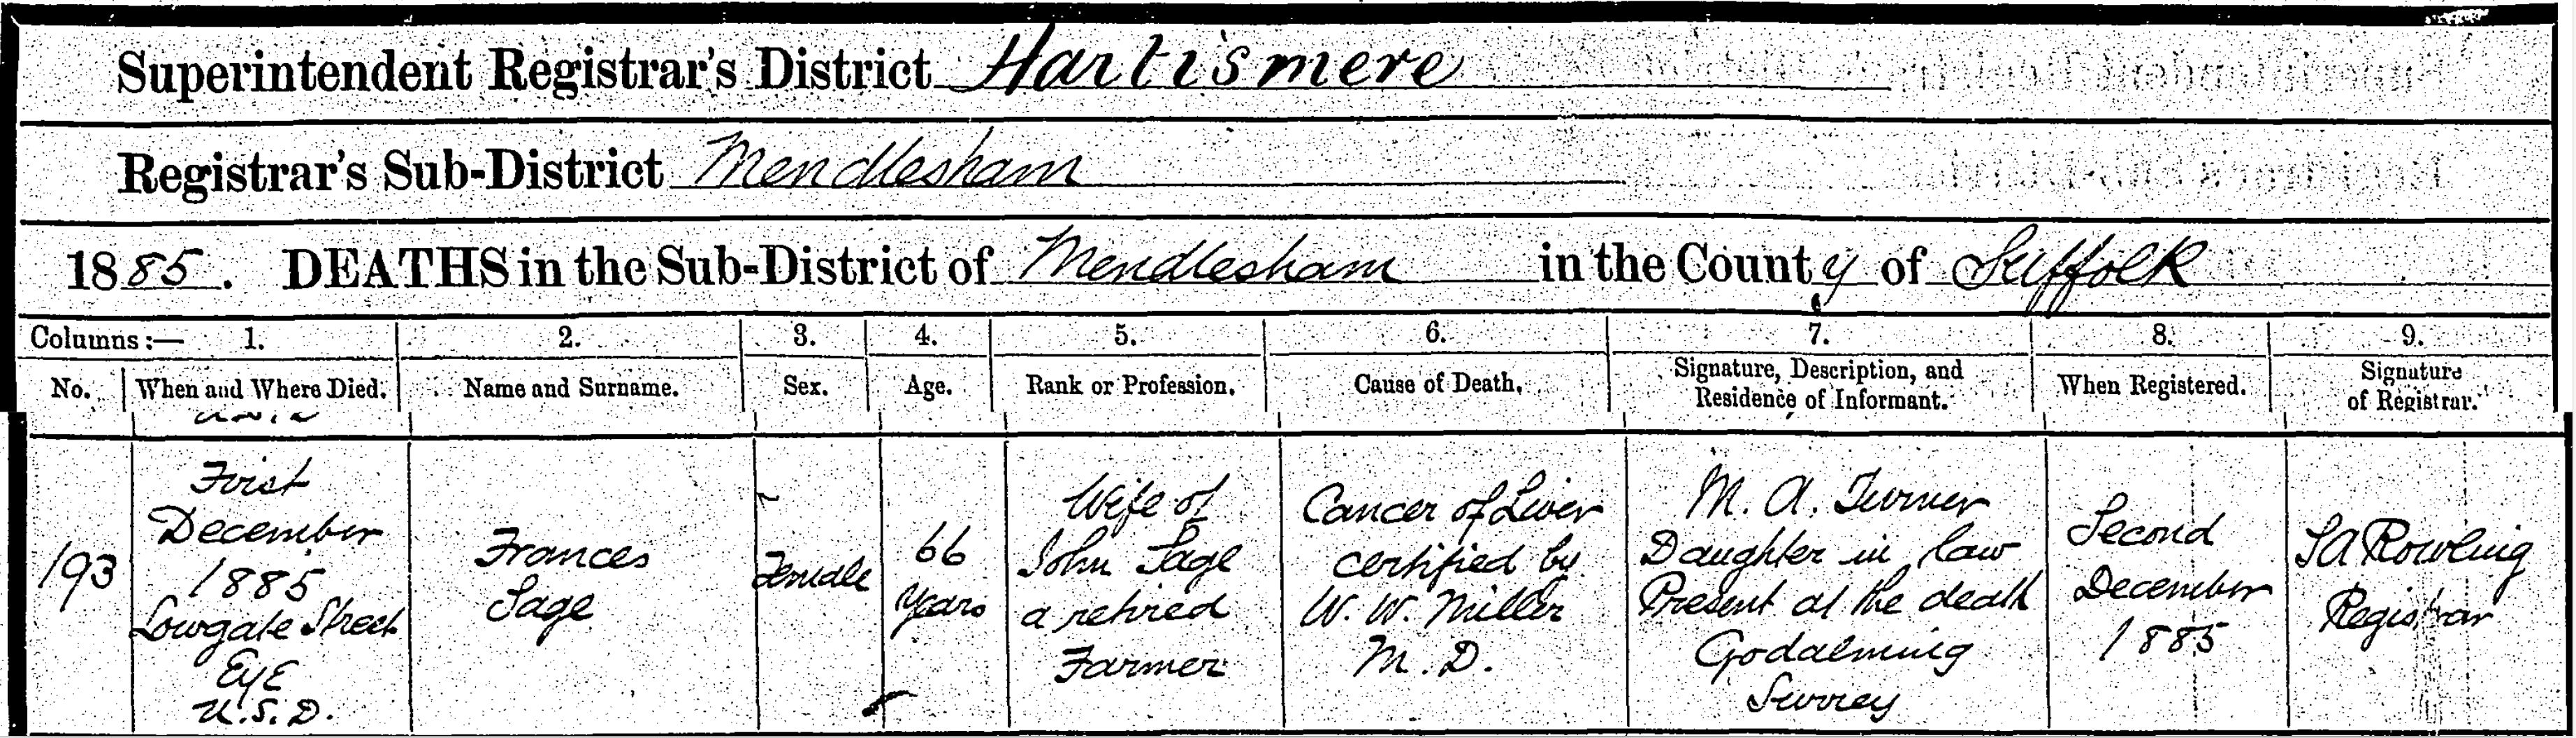 Superintendent Registrar's District Hartismere
Registrar's Sub-District Mendlesham
1885. DEATHS in the Sub-District of Mendlesham in the County of Suffolk
Columns:— 1. 2. 3. 4. 5. 6. 7. 8. 9.
No. When and Where Died. Name and Surname. Sex. Age. Rank or Profession. Cause of Death. Signature, Description, and Residence of Informant. When Registered. Signature of Registrar.
193
First
December
1885
Lowgate Street
Eye
U.S.D.
Frances
Sage
Female
66
Years
Wife of
John Sage
a retired
Farmer
Cancer of Liver
certified by
W. W. Miller
M.D.
M. A. Turner
Daughter in law
Present at the death
Godalming
Surrey
Second
December
1885
SA Rowling
Registrar